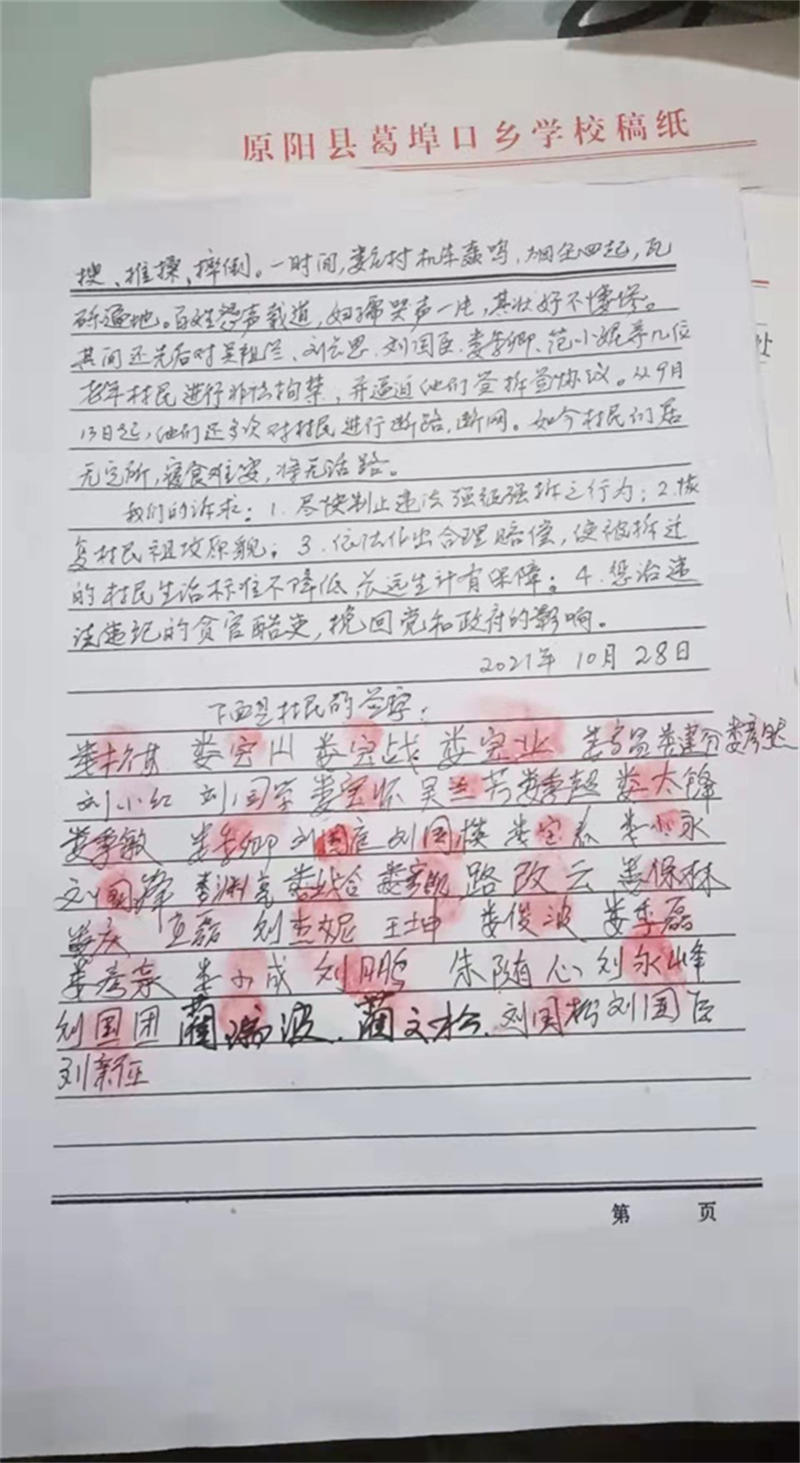 原阳县葛埠口乡学校稿纸
搜、推搡、摔倒。一时间,娄庄村机车轰鸣,烟尘四起,瓦
砾遍地。百姓怨声载道,妇孺哭声一片,其状好不悽惨。
其间还先后对吴祖兰、刘志思、刘国臣、娄季卿、范小妮等几位
老年村民进行非法拘禁,并逼迫他们签拆签协议。从9月
13日起,他们还多次对村民进行断路,断网。如今村民们居
无定所,寝食难安,将无活路。
我们的诉求:1.尽快制止违法强征强拆之行为;2.恢
复村民祖坟原貌;3.依法作出合理赔偿,使被拆迁
的村民生活标准不降低 长远生计有保障;4.惩治违
法违纪的贪官酷吏,挽回党和政府的影响。
2021年 10月 28日
下面是村民的签字:
娄宝山 娄宝战 娄宝业
刘小红 刘国学 娄宝怀 吴兰芳 娄季超 娄太锋
娄季敏 娄季卿 刘国庭 刘国横 娄宝 娄小永
刘国峰 娄战合 娄彦凯 路改云 娄保林
娄庆 刘杰妮 王坤 娄俊波 娄季磊
娄小成 刘鹏 朱随心 刘永峰
刘国团 蔺瑞波 蔺文松 刘国松 刘国臣
刘新征
第 页